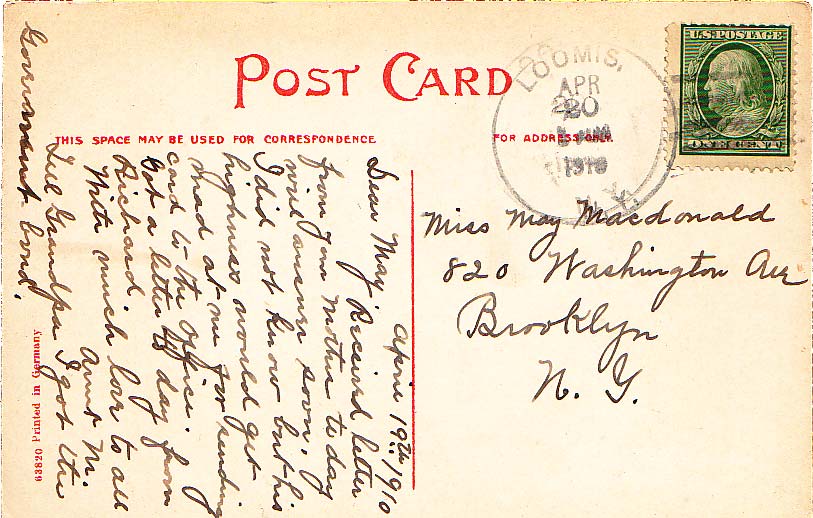 POST CARD
THIS SPACE MAY BE USED FOR CORRESPONDENCE
FOR ADDRESS ONLY.
LOOMIS,
APR
20
1910
N.Y.
U.S. POSTAGE
ONE CENT
Miss May Macdonald
820 Washington Ave
Brooklyn
N. Y.
April 19th 1910
Dear May. Received letter
from your Mother to day
will answer soon.
I did not know but his
highness would get
mad at me for sending
card to the office.
Got a letter to day from
Richard.
With much love to all
Aunt M.
Tell Grandpa I got the
Government bond.
63820 Printed in Germany